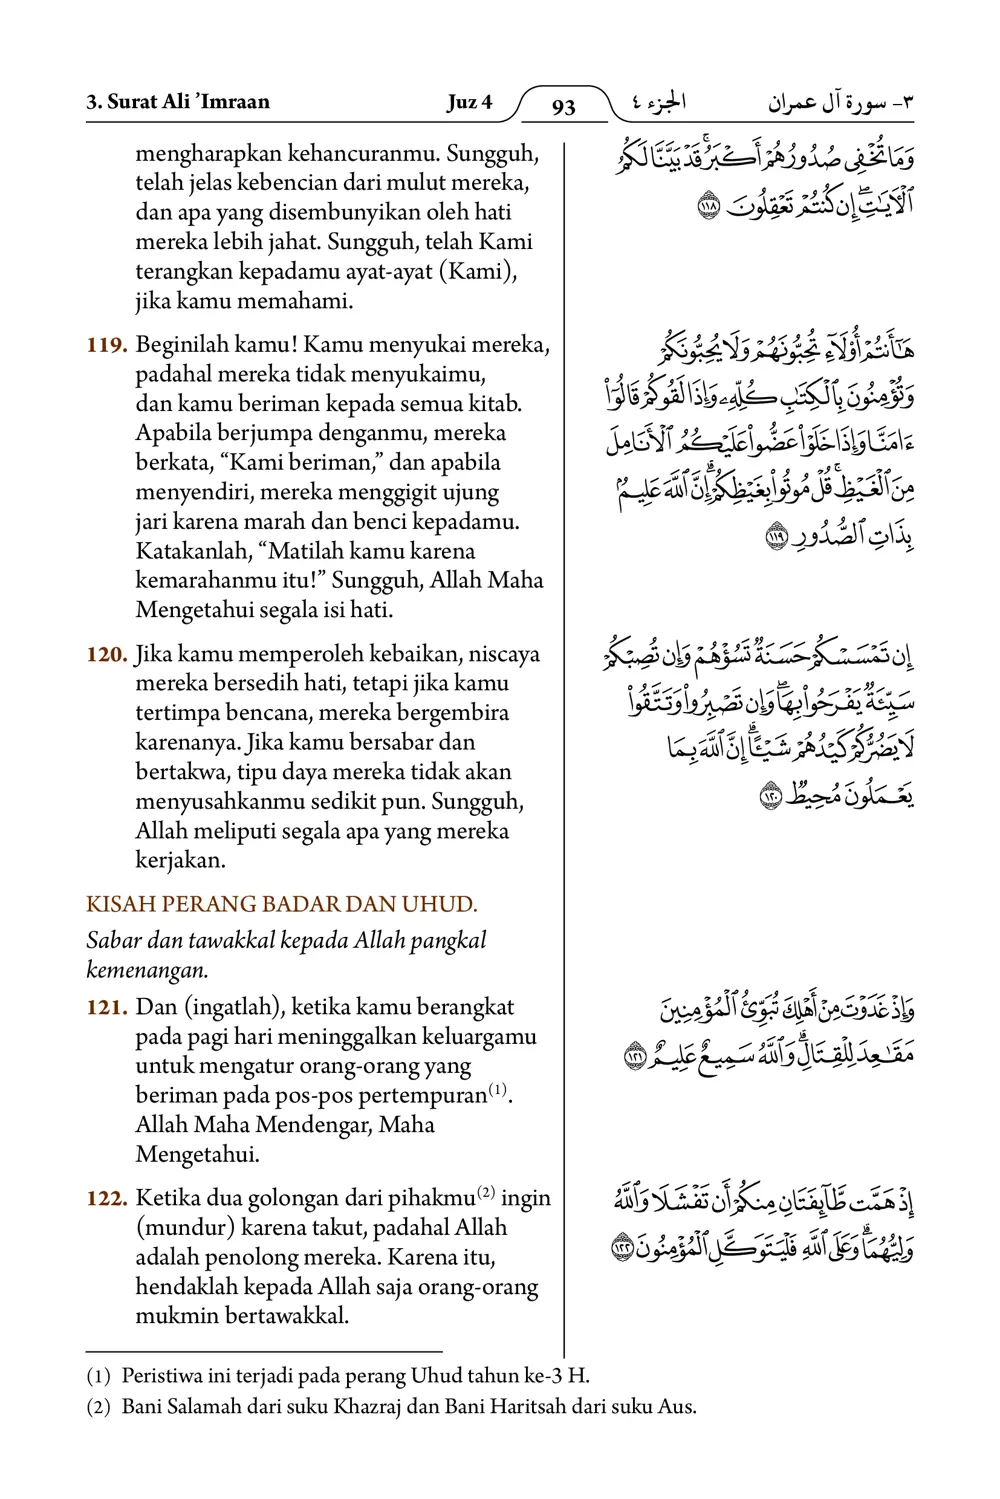 3. Surat Ali ’Imraan
Juz 4
93
الجزء ٤
٣- سورة آل عمران
mengharapkan kehancuranmu. Sungguh,
telah jelas kebencian dari mulut mereka,
dan apa yang disembunyikan oleh hati
mereka lebih jahat. Sungguh, telah Kami
terangkan kepadamu ayat-ayat (Kami),
jika kamu memahami.
وَمَا تُخْفِى صُدُورُهُمْ أَكْبَرُ ۚ قَدْ بَيَّنَّا لَكُمُ
ٱلْـَٔايَـٰتِ ۖ إِن كُنتُمْ تَعْقِلُونَ ١١٨
119. Beginilah kamu! Kamu menyukai mereka,
padahal mereka tidak menyukaimu,
dan kamu beriman kepada semua kitab.
Apabila berjumpa denganmu, mereka
berkata, “Kami beriman,” dan apabila
menyendiri, mereka menggigit ujung
jari karena marah dan benci kepadamu.
Katakanlah, “Matilah kamu karena
kemarahanmu itu!” Sungguh, Allah Maha
Mengetahui segala isi hati.
هَـٰٓأَنتُمْ أُو۟لَآءِ تُحِبُّونَهُمْ وَلَا يُحِبُّونَكُمْ
وَتُؤْمِنُونَ بِٱلْكِتَـٰبِ كُلِّهِۦ وَإِذَا لَقُوكُمْ قَالُوٓا۟
ءَامَنَّا وَإِذَا خَلَوْا۟ عَضُّوا۟ عَلَيْكُمُ ٱلْأَنَامِلَ
مِنَ ٱلْغَيْظِ ۚ قُلْ مُوتُوا۟ بِغَيْظِكُمْ ۗ إِنَّ ٱللَّهَ عَلِيمٌۢ
بِذَاتِ ٱلصُّدُورِ ١١٩
120. Jika kamu memperoleh kebaikan, niscaya
mereka bersedih hati, tetapi jika kamu
tertimpa bencana, mereka bergembira
karenanya. Jika kamu bersabar dan
bertakwa, tipu daya mereka tidak akan
menyusahkanmu sedikit pun. Sungguh,
Allah meliputi segala apa yang mereka
kerjakan.
إِن تَمْسَسْكُمْ حَسَنَةٌ تَسُؤْهُمْ وَإِن تُصِبْكُمْ
سَيِّئَةٌ يَفْرَحُوا۟ بِهَا ۖ وَإِن تَصْبِرُوا۟ وَتَتَّقُوا۟
لَا يَضُرُّكُمْ كَيْدُهُمْ شَيْـًٔا ۗ إِنَّ ٱللَّهَ بِمَا
يَعْمَلُونَ مُحِيطٌ ١٢٠
KISAH PERANG BADAR DAN UHUD.
Sabar dan tawakkal kepada Allah pangkal
kemenangan.
121. Dan (ingatlah), ketika kamu berangkat
pada pagi hari meninggalkan keluargamu
untuk mengatur orang-orang yang
beriman pada pos-pos pertempuran(1).
Allah Maha Mendengar, Maha
Mengetahui.
وَإِذْ غَدَوْتَ مِنْ أَهْلِكَ تُبَوِّئُ ٱلْمُؤْمِنِينَ
مَقَـٰعِدَ لِلْقِتَالِ ۗ وَٱللَّهُ سَمِيعٌ عَلِيمٌ ١٢١
122. Ketika dua golongan dari pihakmu(2) ingin
(mundur) karena takut, padahal Allah
adalah penolong mereka. Karena itu,
hendaklah kepada Allah saja orang-orang
mukmin bertawakkal.
إِذْ هَمَّت طَّآئِفَتَانِ مِنكُمْ أَن تَفْشَلَا وَٱللَّهُ
وَلِيُّهُمَا ۗ وَعَلَى ٱللَّهِ فَلْيَتَوَكَّلِ ٱلْمُؤْمِنُونَ ١٢٢
(1) Peristiwa ini terjadi pada perang Uhud tahun ke-3 H.
(2) Bani Salamah dari suku Khazraj dan Bani Haritsah dari suku Aus.